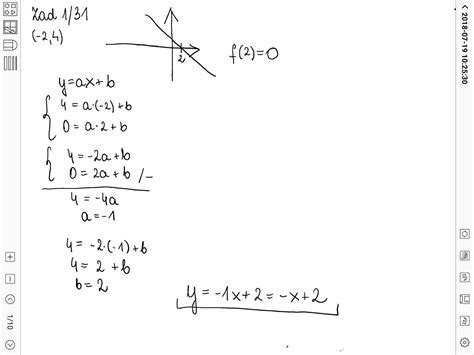 Zad 1/31
(-2,4)
2
f(2)=0
y=ax+b
4 = a·(-2)+b
0 = a·2+b
4 = -2a+b
0 = 2a+b /-
4 = -4a
a=-1
4 = -2·(-1)+b
4 = 2+b
b=2
y = -1x+2 = -x+2
2018-07-19 10:25:30
1/10